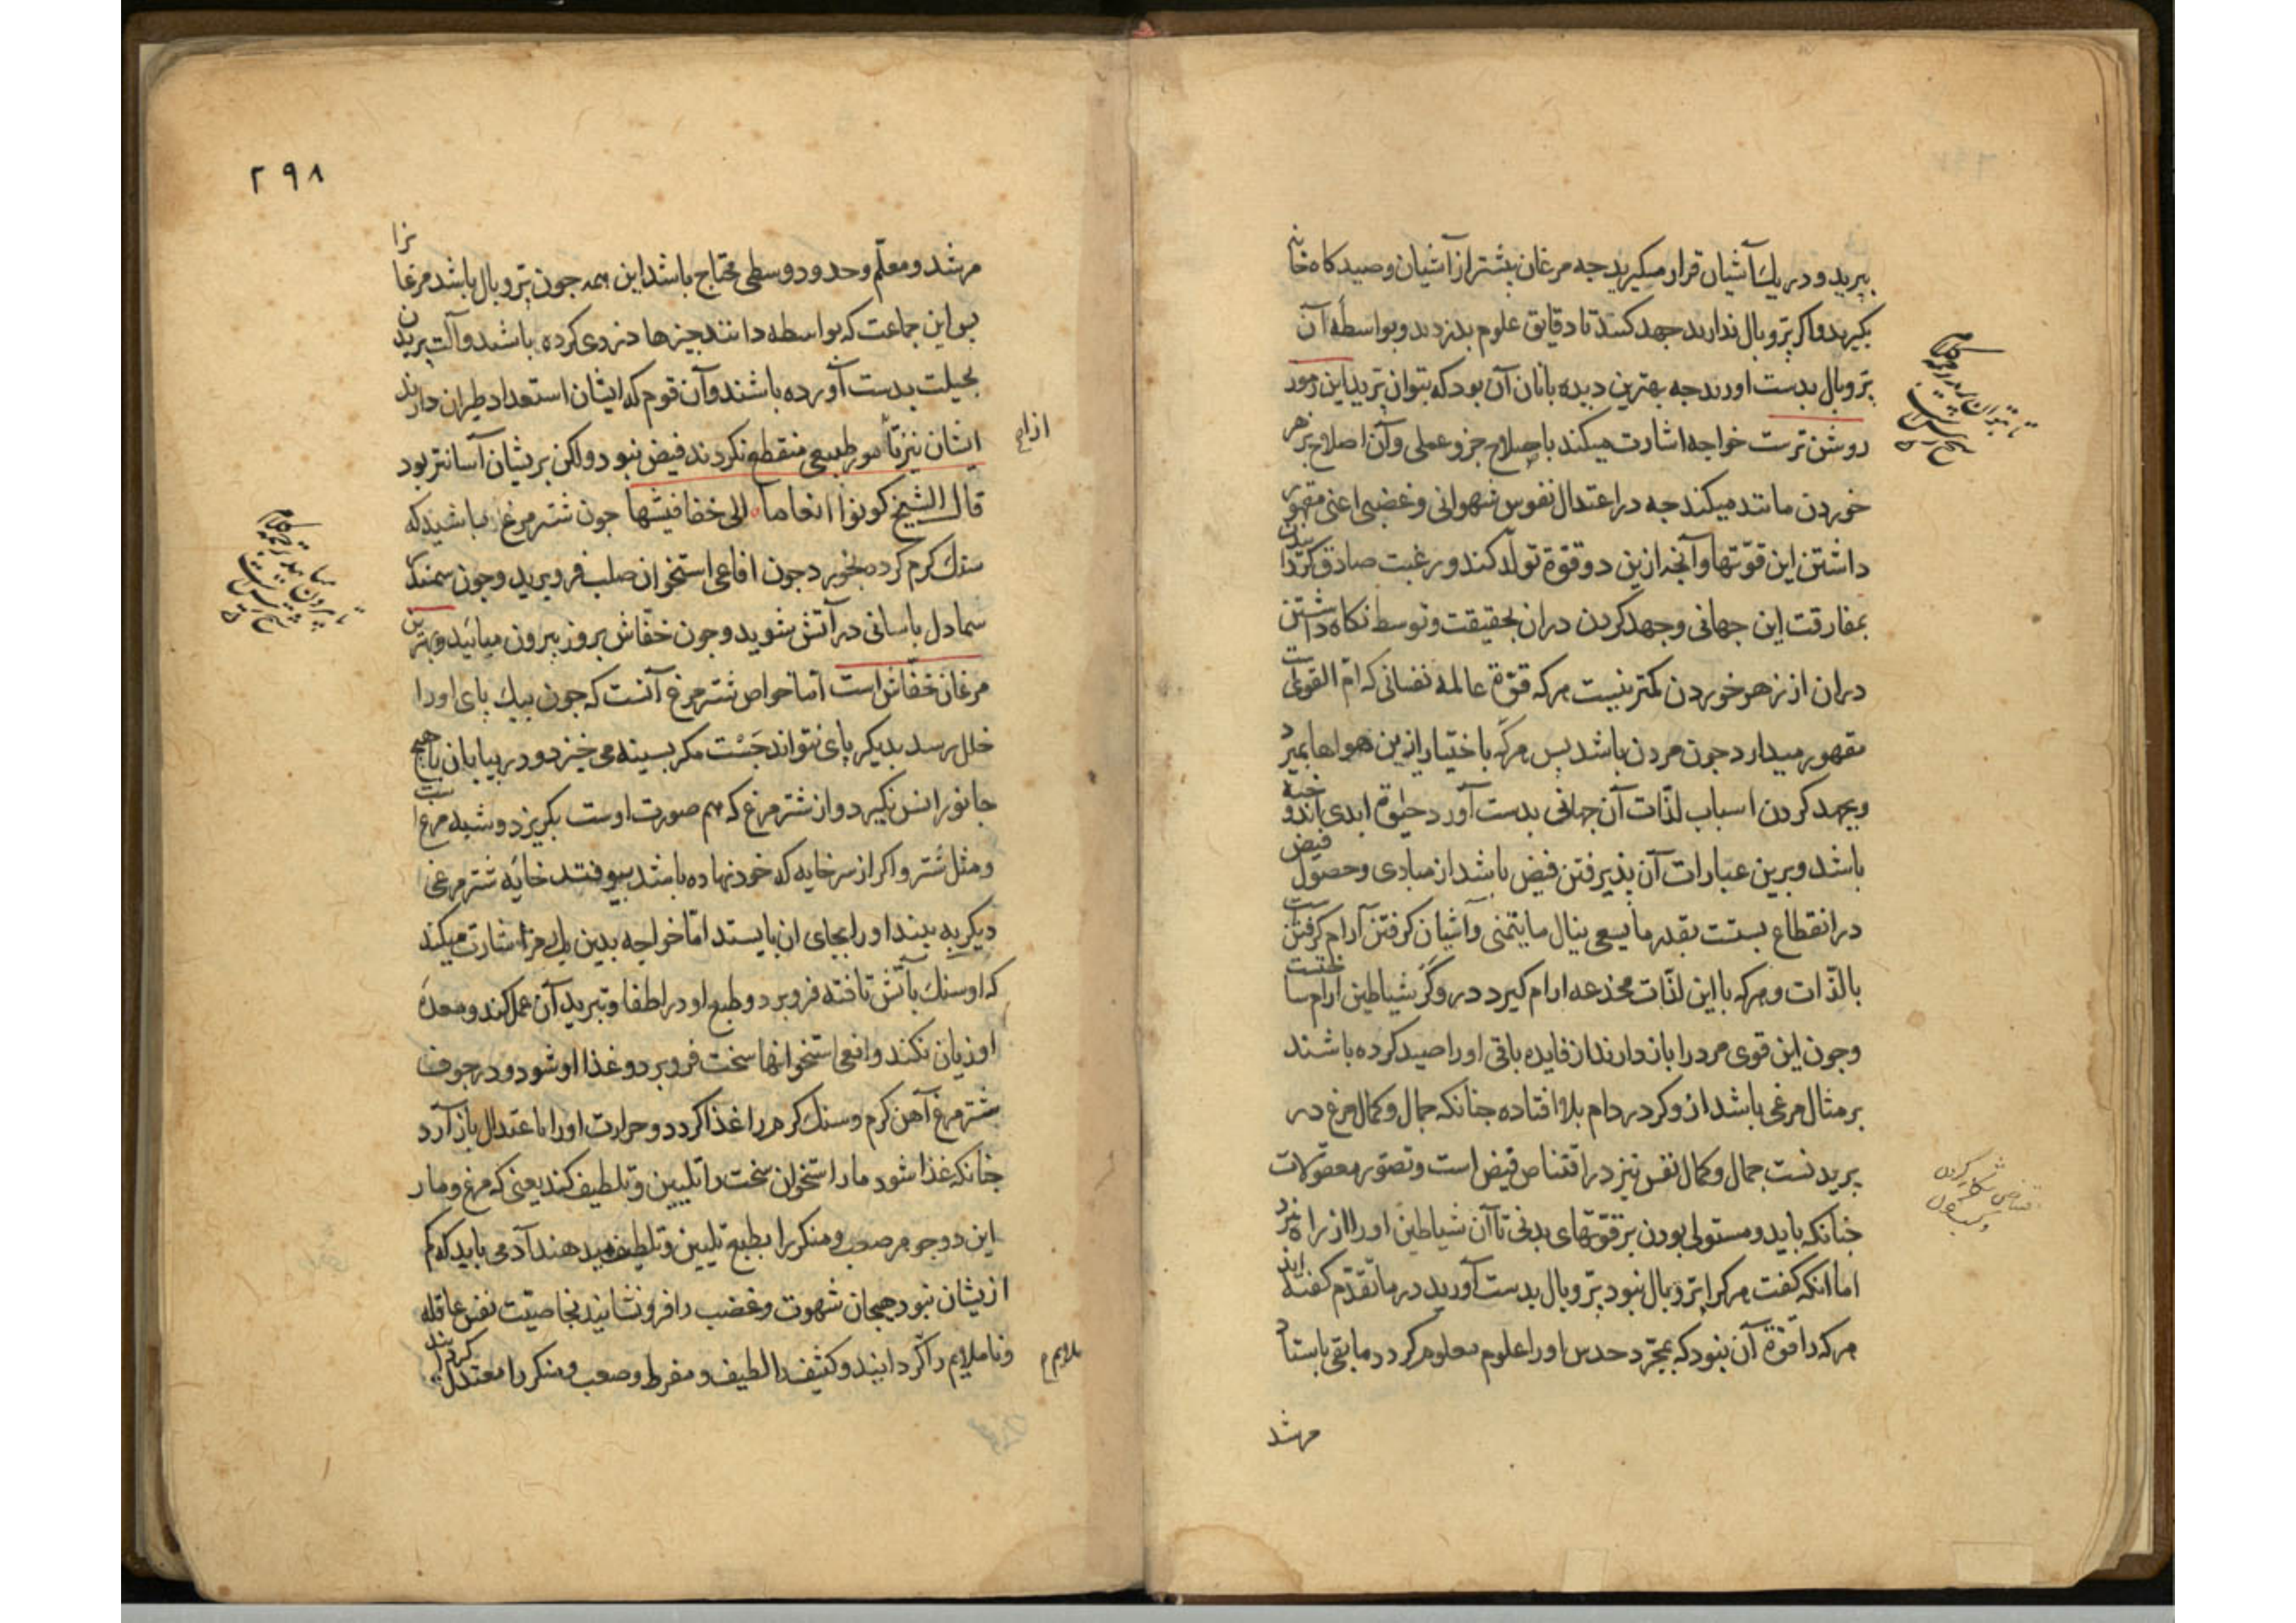 ببرید و در یک آشیان قرار میگیرید جه مرغان بیشتر از آشیان و صیدکاه خانه
بکیرید و اکر پر و بال ندارید جهد کنید تا دقایق علوم بدزدید و بواسطه آن
پر و بال بدست اورید جه بهترین دیده بانان آن بود که بتوان پرید این رموز
روشن ترست خواجه اشارت میکند باصلاح جزو عملی و آن اصلاح بزهر
خوردن مانند میکند جه در اعتدال نفوس شهوانی و غضبی اعنی مقهور
داشتن این قوتها و آنجه ازین دو قوة تولد کند و رغبت صادق کردانیدن
بمفارقت این جهانی و جهد کردن دران بحقیقت و توسط نکاه داشتن
دران از زهر خوردن کمتر نیست هرکه قوة عالمه نفسانی که ام القوی است
مقهور میدارد جون مردن باشد پس هرکه باختیار ازین هواها بمیرد
و بجهد کردن اسباب لذات آن جهانی بدست آورد حیوة ابدی اندوخته
باشد و برین عبارات آن پذیرفتن فیض باشد از مبادی و حصول فیض
در انقطاع بسته است بقدر ما یسعی ینال ما یتمنی و آشیان کرفتن آرام کرفتن است
بالذات و هرکه با این لذات مخدعه ارام کیرد در وکر شیاطین ارام ساختست
و جون این قوی مرد را باز دارند از فایده باقی او را صید کرده باشند
بر مثال مرغی باشد از وکر در دام بلا افتاده جنانکه جمال و کمال مرغ در
پریدنست جمال و کمال نفس نیز در اقتناص فیض است و تصور معقولات
جنانکه باید و مستولی بودن بر قوتهای بدنی تا آن شیاطین او را از راه نبرد
اما انکه کفت هرکرا پر و بال نبود پر و بال بدست آورید در ما تقدم کفته اند
هرکه را قوة آن نبود که بمجرد حدس او را علوم معلوم کردد ما بقی باستاد
مرشد
اقتناص شکار کردن
و کسب کردن
۲۹۸
مرشد و معلم و حدود وسطی محتاج باشد این همه جون پر و بال باشد مرغانرا
پس این جماعت که بواسطه دانند جیزها دزدی کرده باشند و آلت پریدن
بحیلت بدست آورده باشند و آن قوم که ایشان استعداد طیران دارند
ایشان نیز تا امور طبیعی منقطع نکردند فیض نبود ولکن بریشان آسانتر بود
قال الشیخ کونوا انعاما الی خفافیشها جون شترمرغ باشید که
سنک کرم کرده بخورد جون افاعی استخوان صلب فرو برید و جون سمندر
سمادل باسانی در آتش شوید و جون خفاش بروز بیرون میائید و بهترین
مرغان خفاش است اما خواص شترمرغ آنست که جون بیک پای او را
خلل رسد بدیکر پای نتواند جست مکر بسینه می خیزد و در بیابان با هیچ
جانور انس نکیرد و از شترمرغ که هم صورت اوست بکریزد و شبیه مرغ است
و مثل شتر و اکر از سر خایه که خود نهاده باشد بیوفتد خایه شترمرغی
دیکر به بیند او را بجای ان بایستد اما خواجه بدین یک مزاج اشارت میکند
که او سنک بآتش تافته فرو برد و طبع او در اطفا و تبرید آن عمل کند و معده
او زیان نکند و افعی استخوانها سخت فرو برد و غذا او شود و در جوف
شترمرغ آهن کرم و سنک کرم را غذا کردد و حرارت او را با عتدال باز آرد
جنانکه غذا شود مار استخوان سخت را تلیین و تلطیف کند یعنی که مرغ و مار
این دو جوهر صعب و منکر را بطبع تلیین و تلطیف میدهند آدمی باید که کم
ازیشان نبود هیجان شهوت و غضب را فرو نشانید بخاصیت نفس عاقله
و ناملایم را کردانیند و کثیف را لطیف و مفرط و صعب و منکر را معتدل کردانند
از امور
ملایم